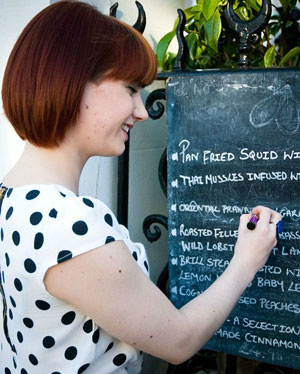 PAN FRIED SQUID WI
THAI MUSSLES INFUSED W
ORIENTAL PRAWN GAR
ROASTED FILLE BASS
WILD LOBSTE LAN
BRILL STEA ED WI
LEMON BABY LE
COGN SED PEACHES
A SELECTION
ADE CINNAMON